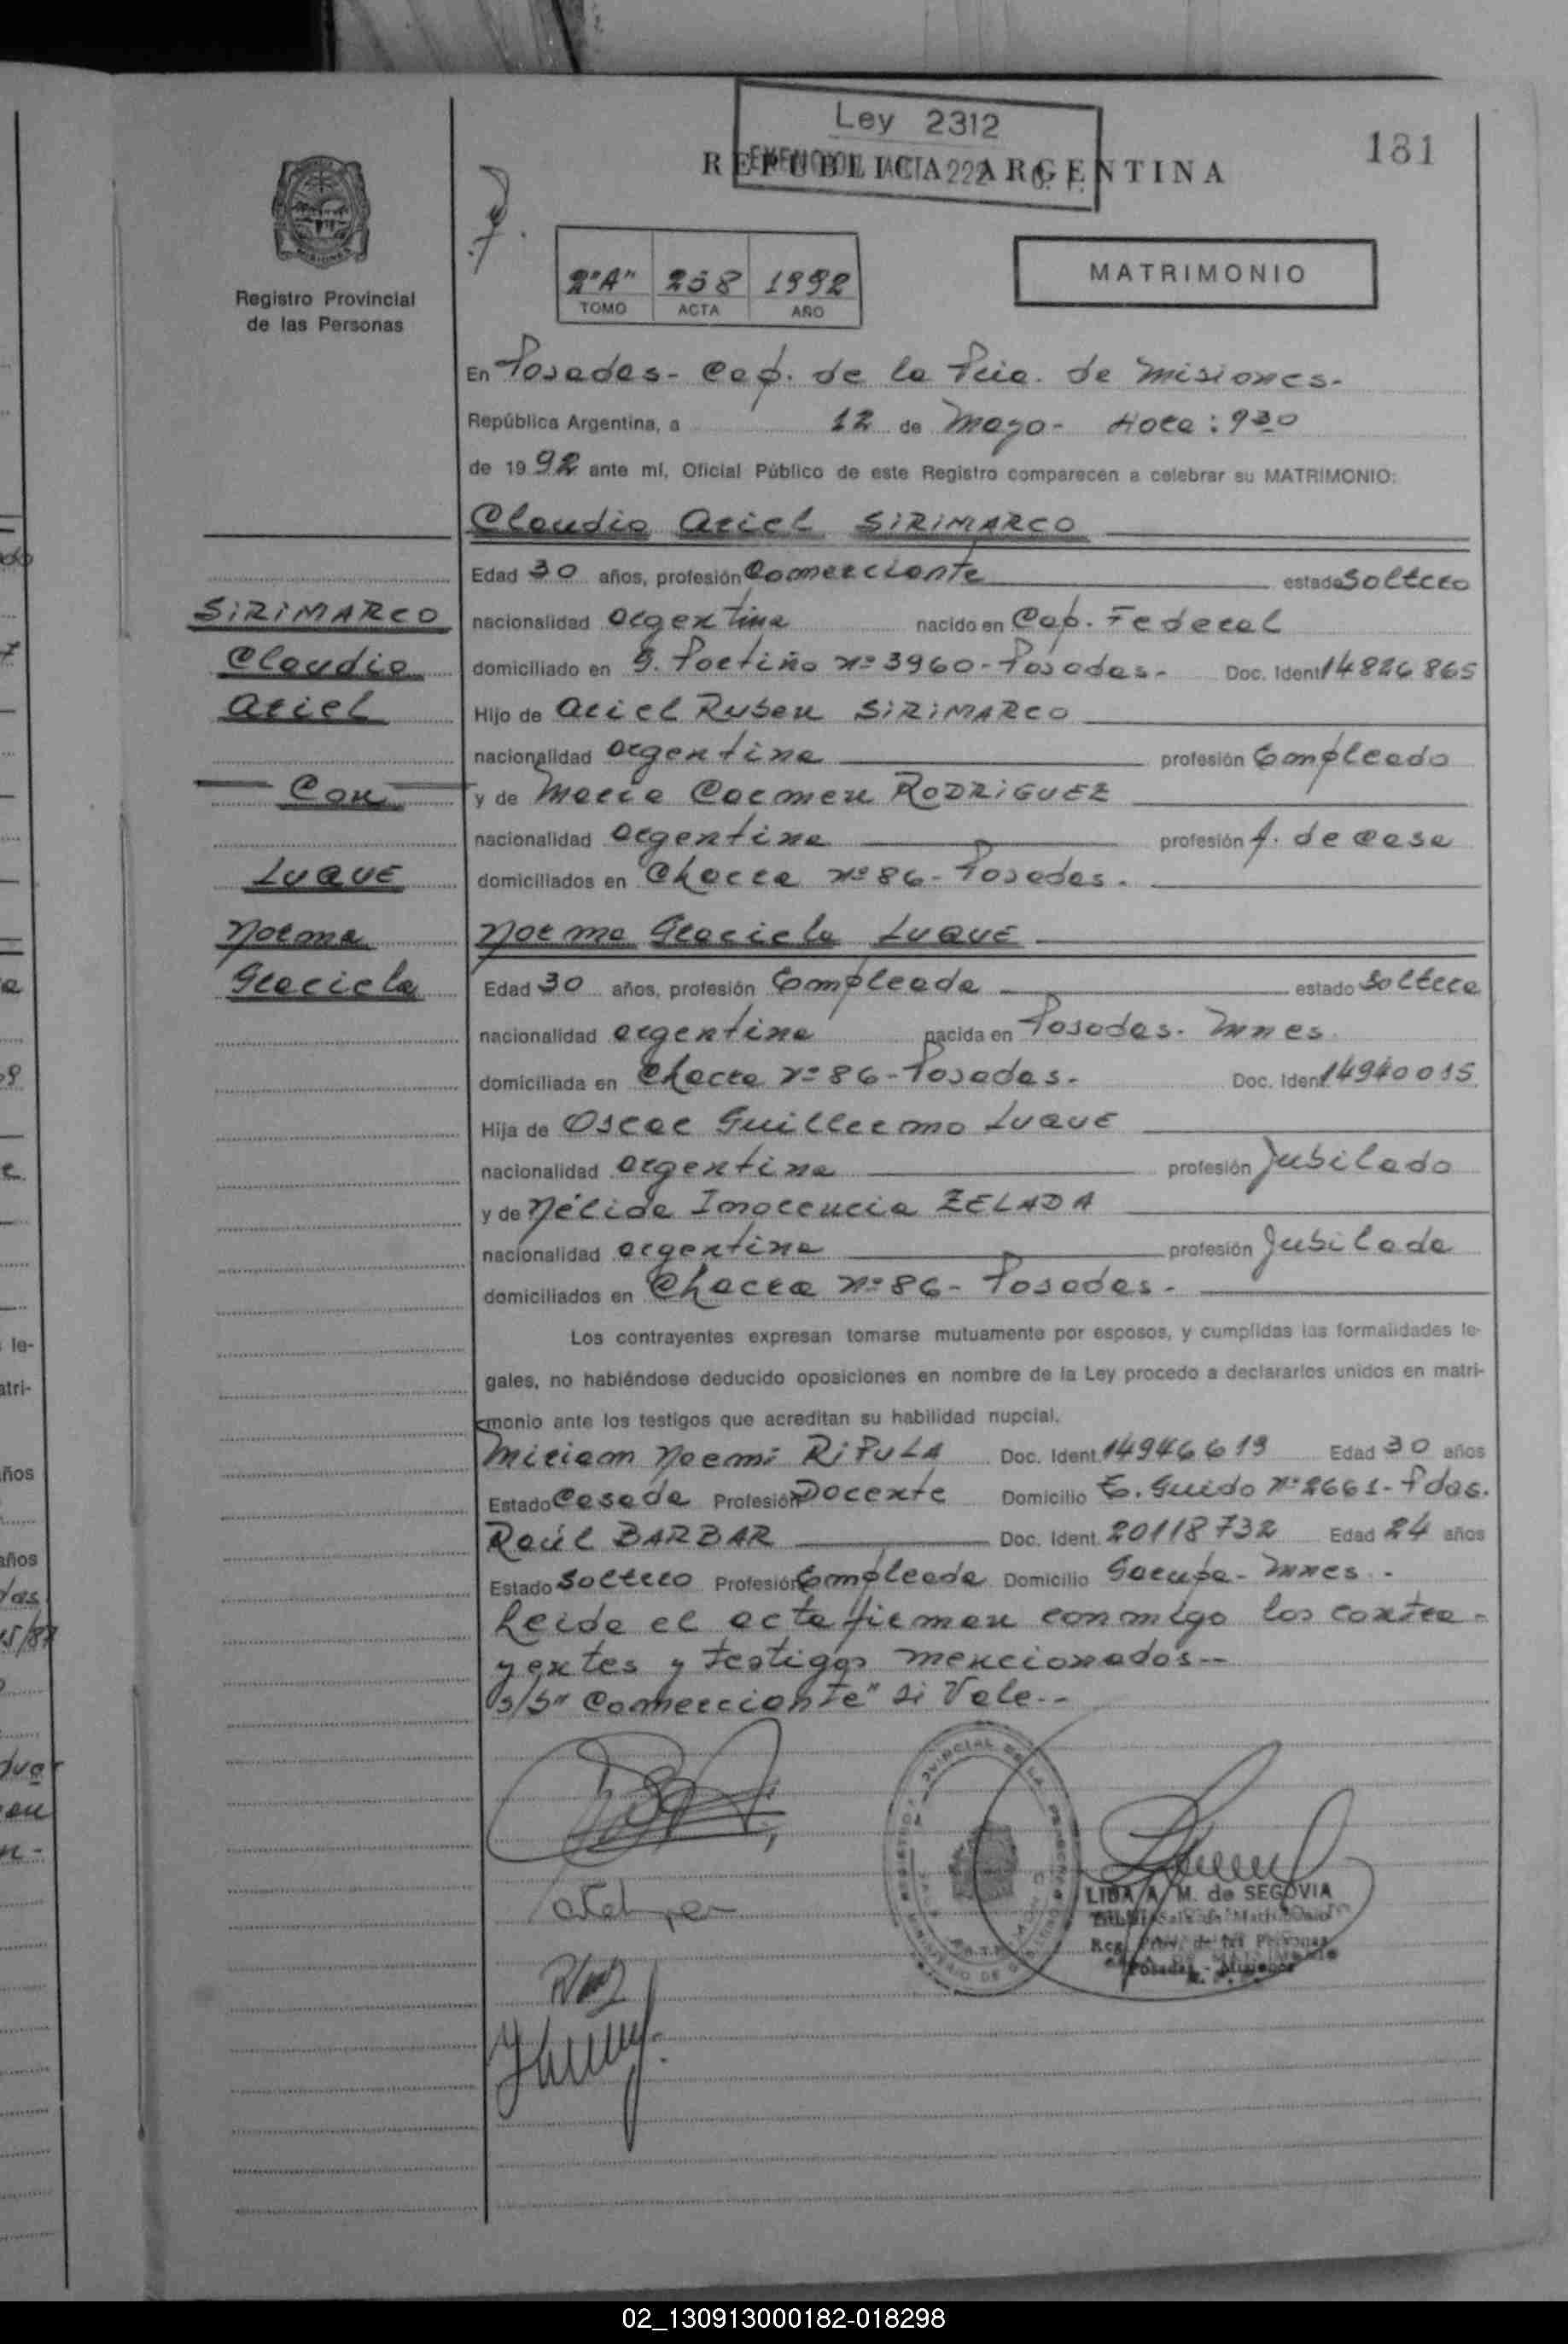 Ley 2312
REPUBLICA ARGENTINA
181
Registro Provincial
de las Personas
2º"A" 258 1992
TOMO ACTA AÑO
MATRIMONIO
En Posadas- Cap. de la Pcia. de Misiones-
República Argentina, a 12 de Mayo- Hora: 930
de 1992 ante mí, Oficial Público de este Registro comparecen a celebrar su MATRIMONIO:
Claudio Ariel SIRIMARCO
Edad 30 años, profesión Comerciante estado Soltero
SIRIMARCO
nacionalidad argentina nacido en Cap. Federal
Claudio
domiciliado en G. Portiño nº 3960-Posadas- Doc. Ident 14826865
Ariel
Hijo de Ariel Ruben SIRIMARCO
nacionalidad argentina profesión Empleado
Con
y de Maria Carmen RODRIGUEZ
nacionalidad argentina profesión A. de casa
LUQUE
domiciliados en Chacra nº 86- Posadas.
Norma
Norma Graciela LUQUE
Graciela
Edad 30 años, profesión Empleada estado Soltera
nacionalidad argentina nacida en Posadas- Mnes
domiciliada en Chacra nº 86-Posadas- Doc. Ident 14940015
Hija de Oscar Guillermo LUQUE
nacionalidad argentina profesión Jubilado
y de Nélida Inocencia ZELADA
nacionalidad argentina profesión Jubilada
domiciliados en Chacra nº 86- Posadas-
Los contrayentes expresan tomarse mutuamente por esposos, y cumplidas las formalidades le-
gales, no habiéndose deducido oposiciones en nombre de la Ley procedo a declararlos unidos en matri-
monio ante los testigos que acreditan su habilidad nupcial.
Miriam Noemí RIPULA Doc. Ident. 14946619 Edad 30 años
Estado Casada Profesión Docente Domicilio T. Guido nº 2661-Pdas.
Raúl BARBAR Doc. Ident. 20118732 Edad 24 años
Estado Soltero Profesión Empleada Domicilio Garupa- Mnes.-
Leida el acta firman conmigo los contra-
yentes y testigos mencionados--
S/b" Comerciante" Si Vale--
LIDA A. M. de SEGOVIA
Reg. Prov. de las Personas
Posadas - Misiones
02_130913000182-018298